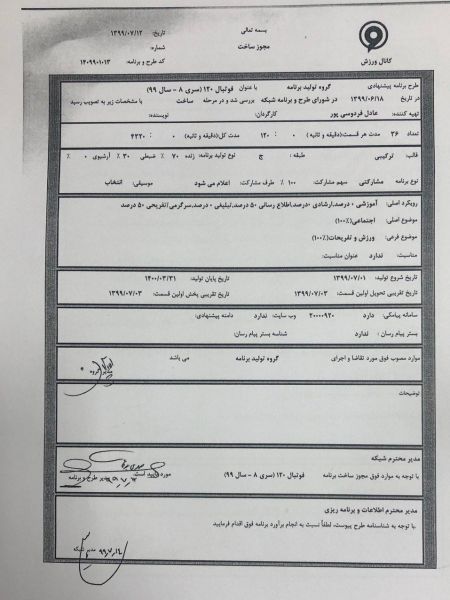 بسمه تعالی
مجوز ساخت
تاریخ: ۱۳۹۹/۰۷/۱۲
شماره:
کد طرح و برنامه: ۱۲۰۹۹۰۱۰۱۳
کانال ورزش
طرح برنامه پیشنهادی گروه تولید برنامه با عنوان فوتبال ۱۲۰ (سری ۸ - سال ۹۹)
در تاریخ ۱۳۹۹/۰۶/۱۸ در شورای طرح و برنامه شبکه بررسی شد و در مرحله ساخت با مشخصات زیر به تصویب رسید
تهیه کننده: عادل فردوسی پور کارگردان: نویسنده:
تعداد ۳۶ مدت هر قسمت(دقیقه و ثانیه) ۰ : ۱۲۰ مدت کل(دقیقه و ثانیه) ۰ : ۴۳۲۰
قالب: ترکیبی طبقه: ج نوع تولید برنامه: زنده ۷۰ % ضبطی ۳۰ % آرشیوی ۰ %
نوع برنامه مشارکتی سهم مشارکت: ۱۰۰ % طرف مشارکت: اعلام می شود موسیقی: انتخاب
رویکرد اصلی: آموزشی ۰ درصد،ارشادی ۰درصد،اطلاع رسانی ۵۰ درصد،تبلیغی ۰ درصد،سرگرمی/تفریحی ۵۰ درصد
موضوع اصلی: اجتماعی(۱۰۰٪)
موضوع فرعی: ورزش و تفریحات(۱۰۰٪)
مناسبت: ندارد عنوان مناسبت:
تاریخ شروع تولید: ۱۳۹۹/۰۷/۰۱ تاریخ پایان تولید: ۱۴۰۰/۰۳/۳۱
تاریخ تقریبی تحویل اولین قسمت: ۱۳۹۹/۰۷/۰۳ تاریخ تقریبی پخش اولین قسمت: ۱۳۹۹/۰۷/۰۳
سامانه پیامکی: دارد ۲۰۰۰۰۹۲۰ وب سایت: ندارد دامنه پیشنهادی:
بستر پیام رسان: ندارد شناسه بستر پیام رسان:
موارد مصوب فوق مورد تقاضا و اجرای گروه تولید برنامه می باشد
مدیر گروه
توضیحات
مدیر محترم شبکه
با توجه به موارد فوق مجوز ساخت برنامه فوتبال ۱۲۰ (سری ۸ - سال ۹۹) مورد تایید است.
مدیر طرح و برنامه
مدیر محترم اطلاعات و برنامه ریزی
.با توجه به شناسنامه طرح پیوست، لطفاً نسبت به انجام برآورد برنامه فوق اقدام فرمایید
مدیر شبکه